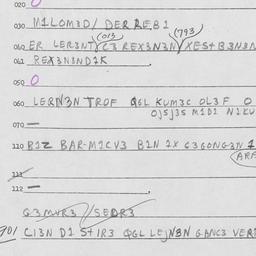 020 O
030 M1LOM3D/ DERREB1
(013) (793)
040 ER LER3N3T/C3 REX3N3N/XEST B3N3N
041 REX3N3ND1K
050 O
060 LERN3N TROF QGL KUM3C OL3F O
OJSJ3S M1D1 N1KV
070 —
110 B1Z BAR-M1CV3 B1N 1X G3GONG3N 1
(ARF
111 —
112 —
G3MVR3/SEDR3
901 C13N D1 ST1R3 QGL LEJN3N GANC3 VER